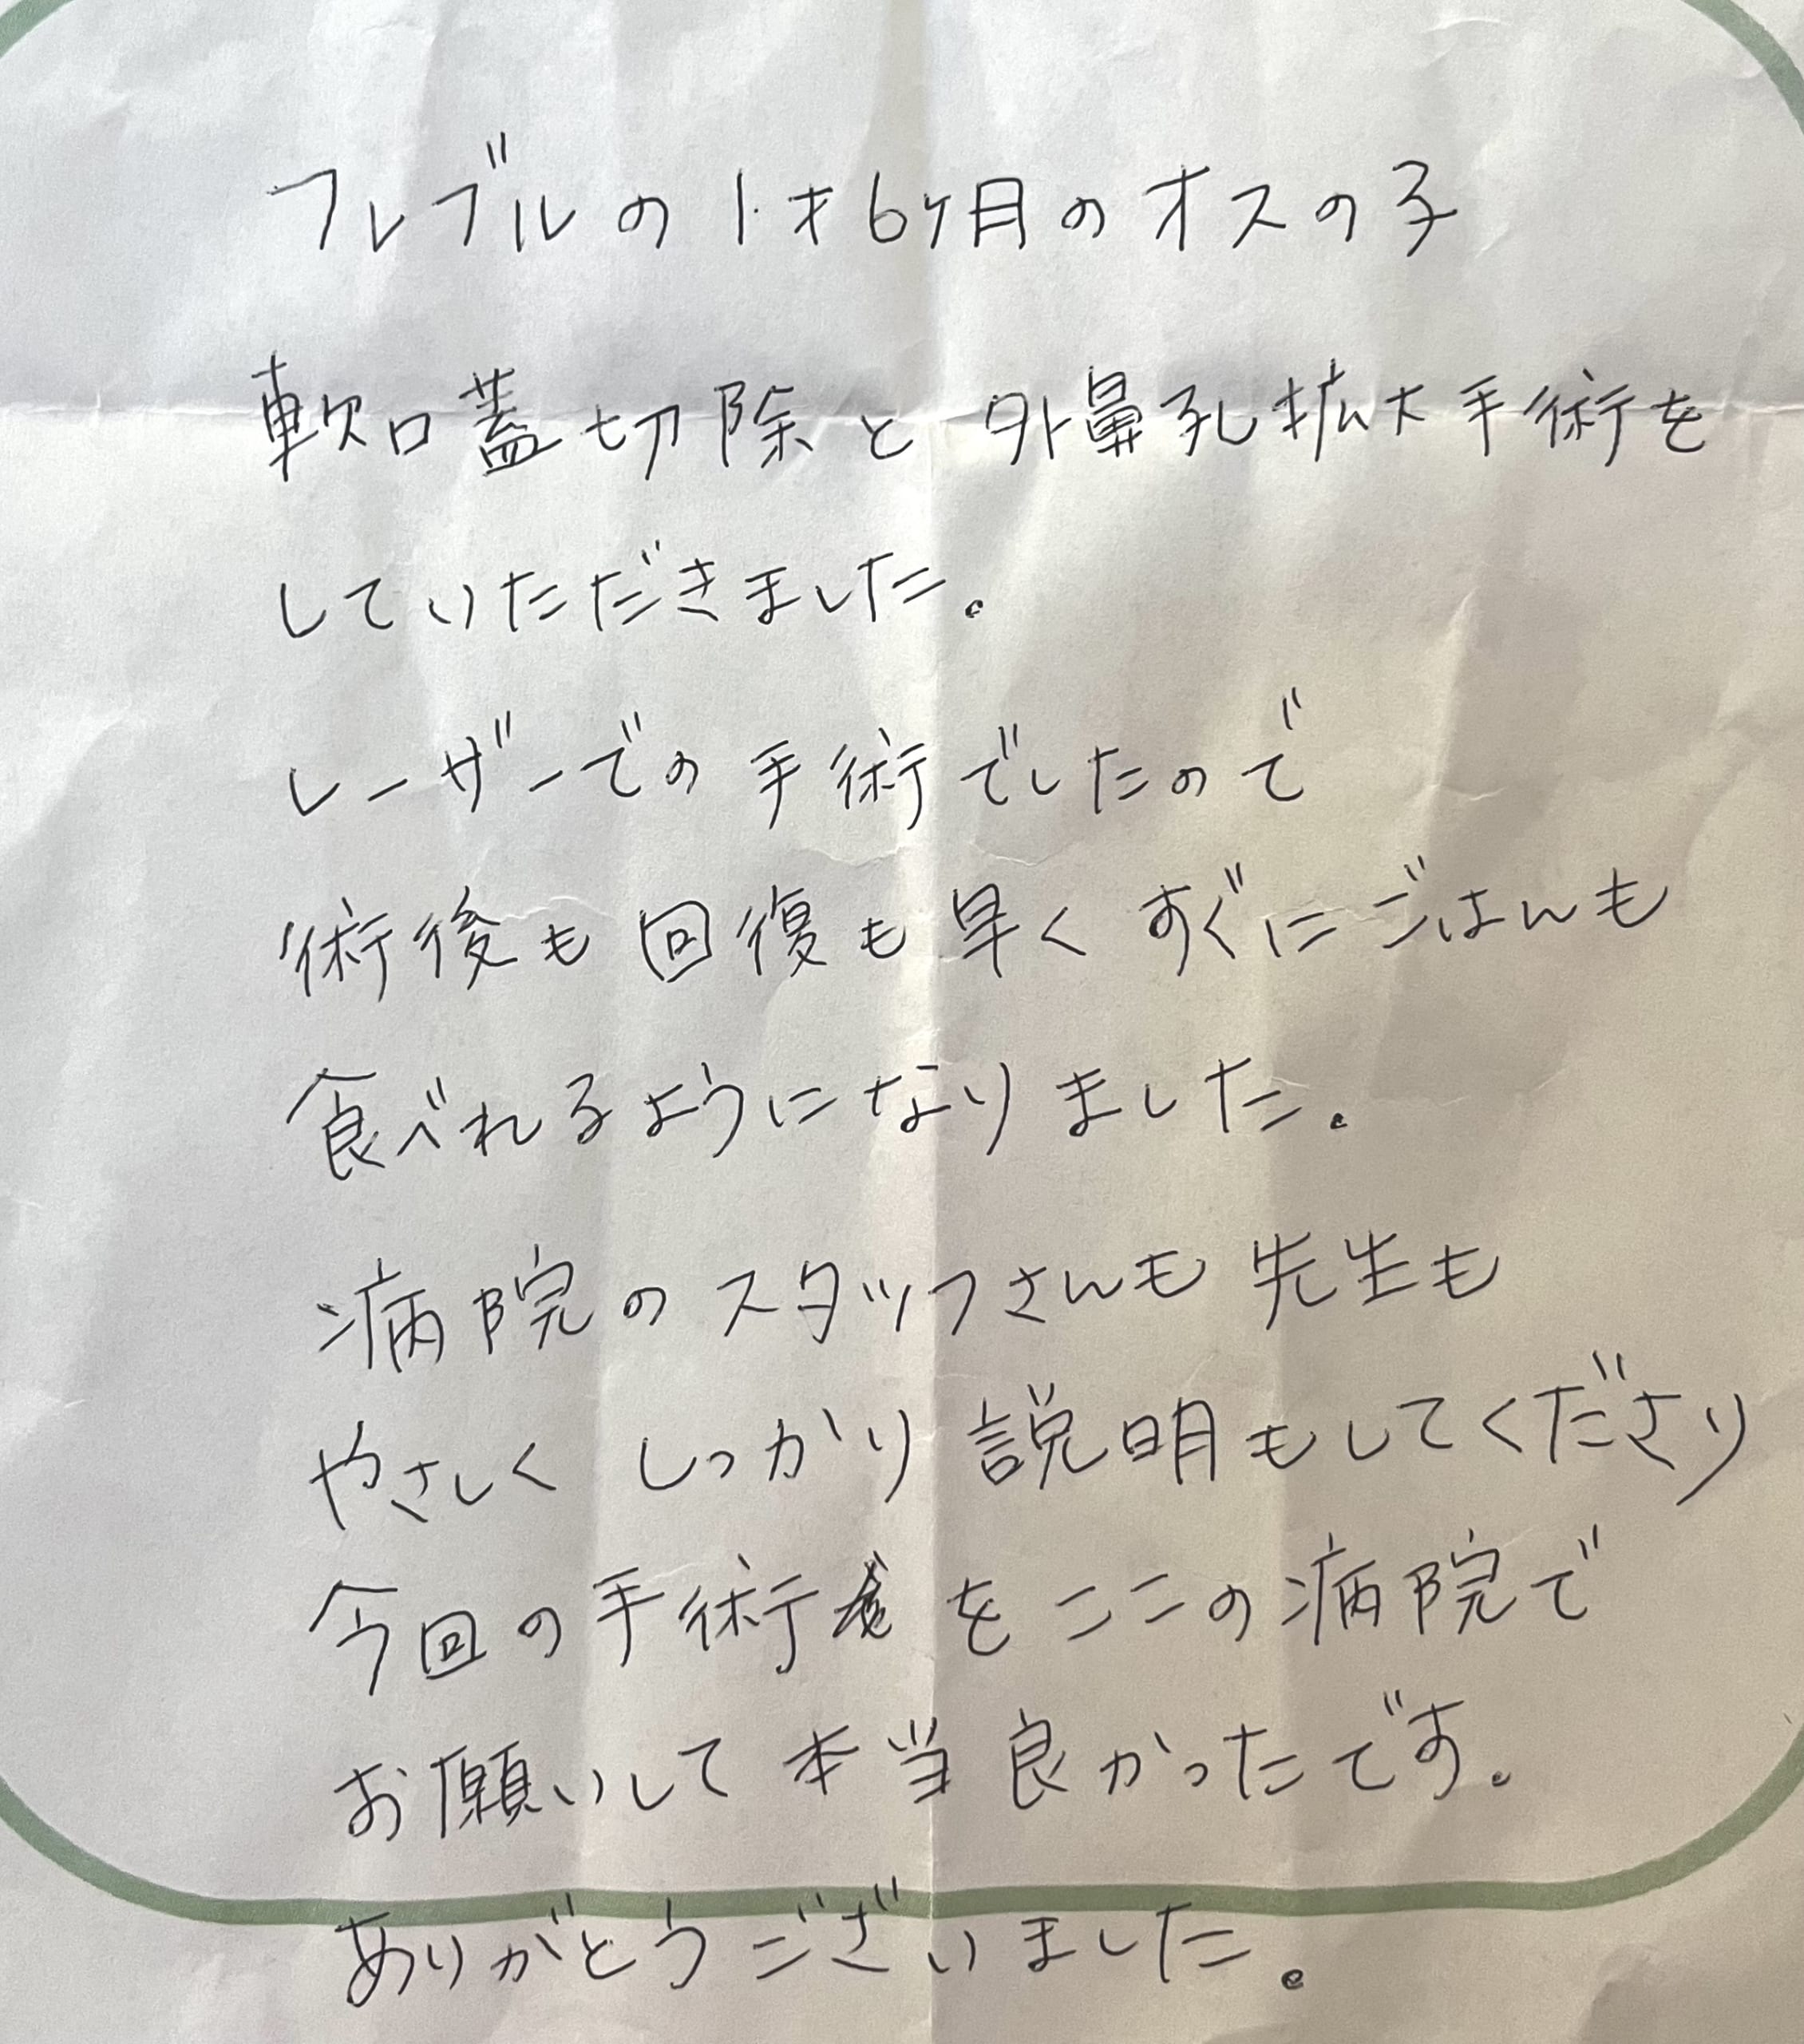 フレブルの1才6ヶ月のオスの子
軟口蓋切除と外鼻孔拡大手術を
していただきました。
レーザーでの手術でしたので
術後も回復も早くすぐにごはんも
食べれるようになりました。
病院のスタッフさんも先生も
やさしくしっかり説明もしてくださり
今回の手術をここの病院で
お願いして本当良かったです。
ありがとうございました。